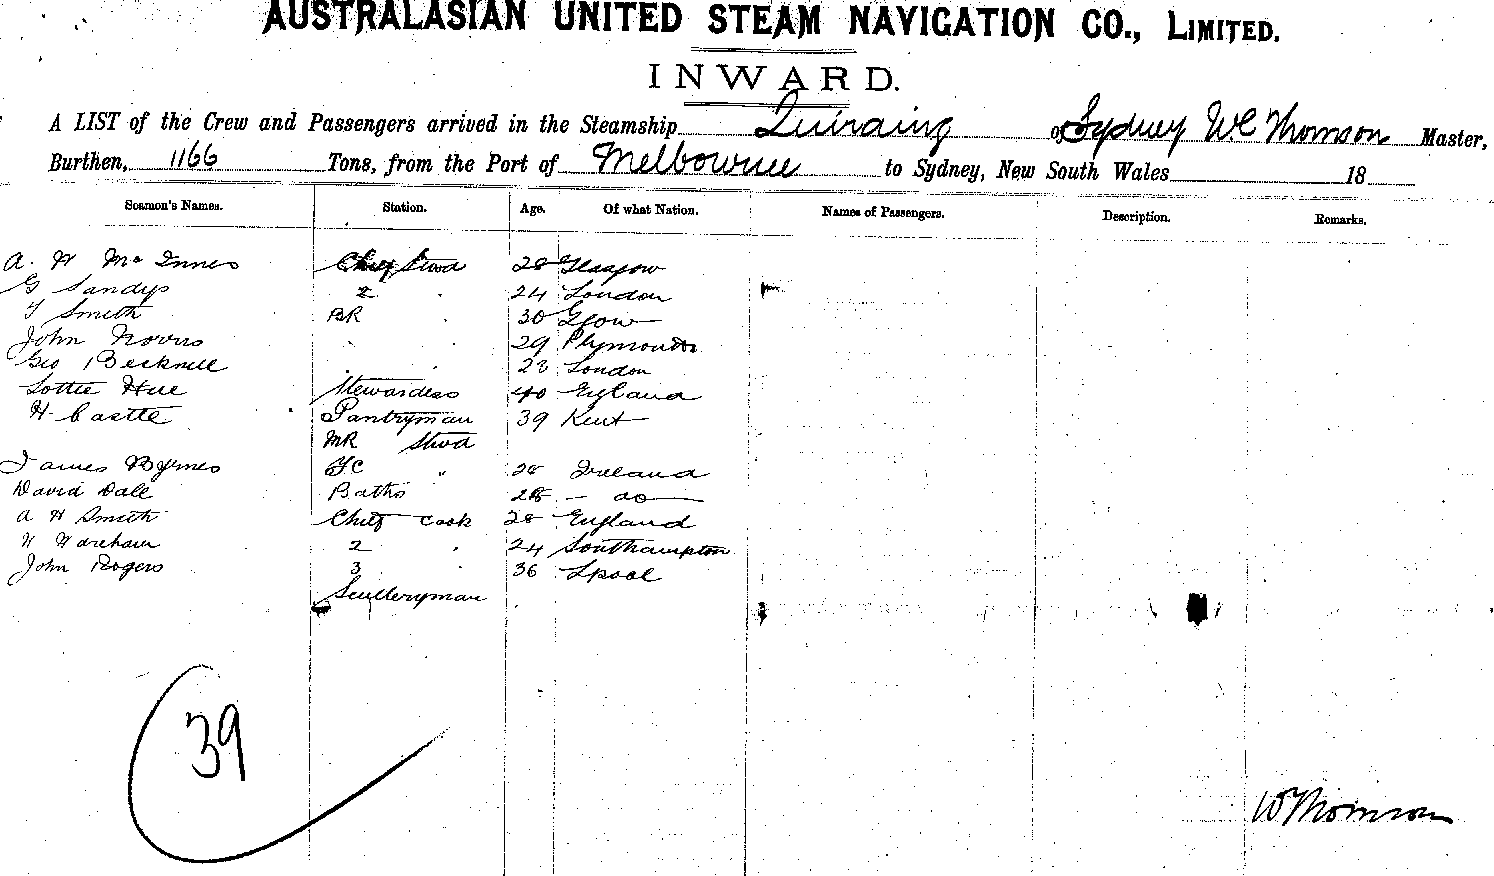 AUSTRALASIAN UNITED STEAM NAVIGATION CO., LIMITED.
INWARD.
A LIST of the Crew and Passengers arrived in the Steamship Quiraing of Sydney W C Thomson Master,
Burthen, 1166 Tons, from the Port of Melbourne to Sydney, New South Wales 18
Seamen's Names. Station. Age. Of what Nation. Names of Passengers. Description. Remarks.
A. W McInnes Chief Stwd 28 Glasgow
G Sandys 2 " 24 London
T Smith BR " 30 Glow
John Norris 29 Plymouth
Geo Becknell 28 London
Lottie Hue Stewardess 40 England
H Castle Pantryman 39 Kent
MR Stwd
James Byrnes FC " 28 Ireland
David Dall Baths 28 - do -
A H Smith Chief Cook 28 England
W Wareham 2 " 24 Southampton
John Rogers 3 " 36 Lpool
Sculleryman
39
W Thomson